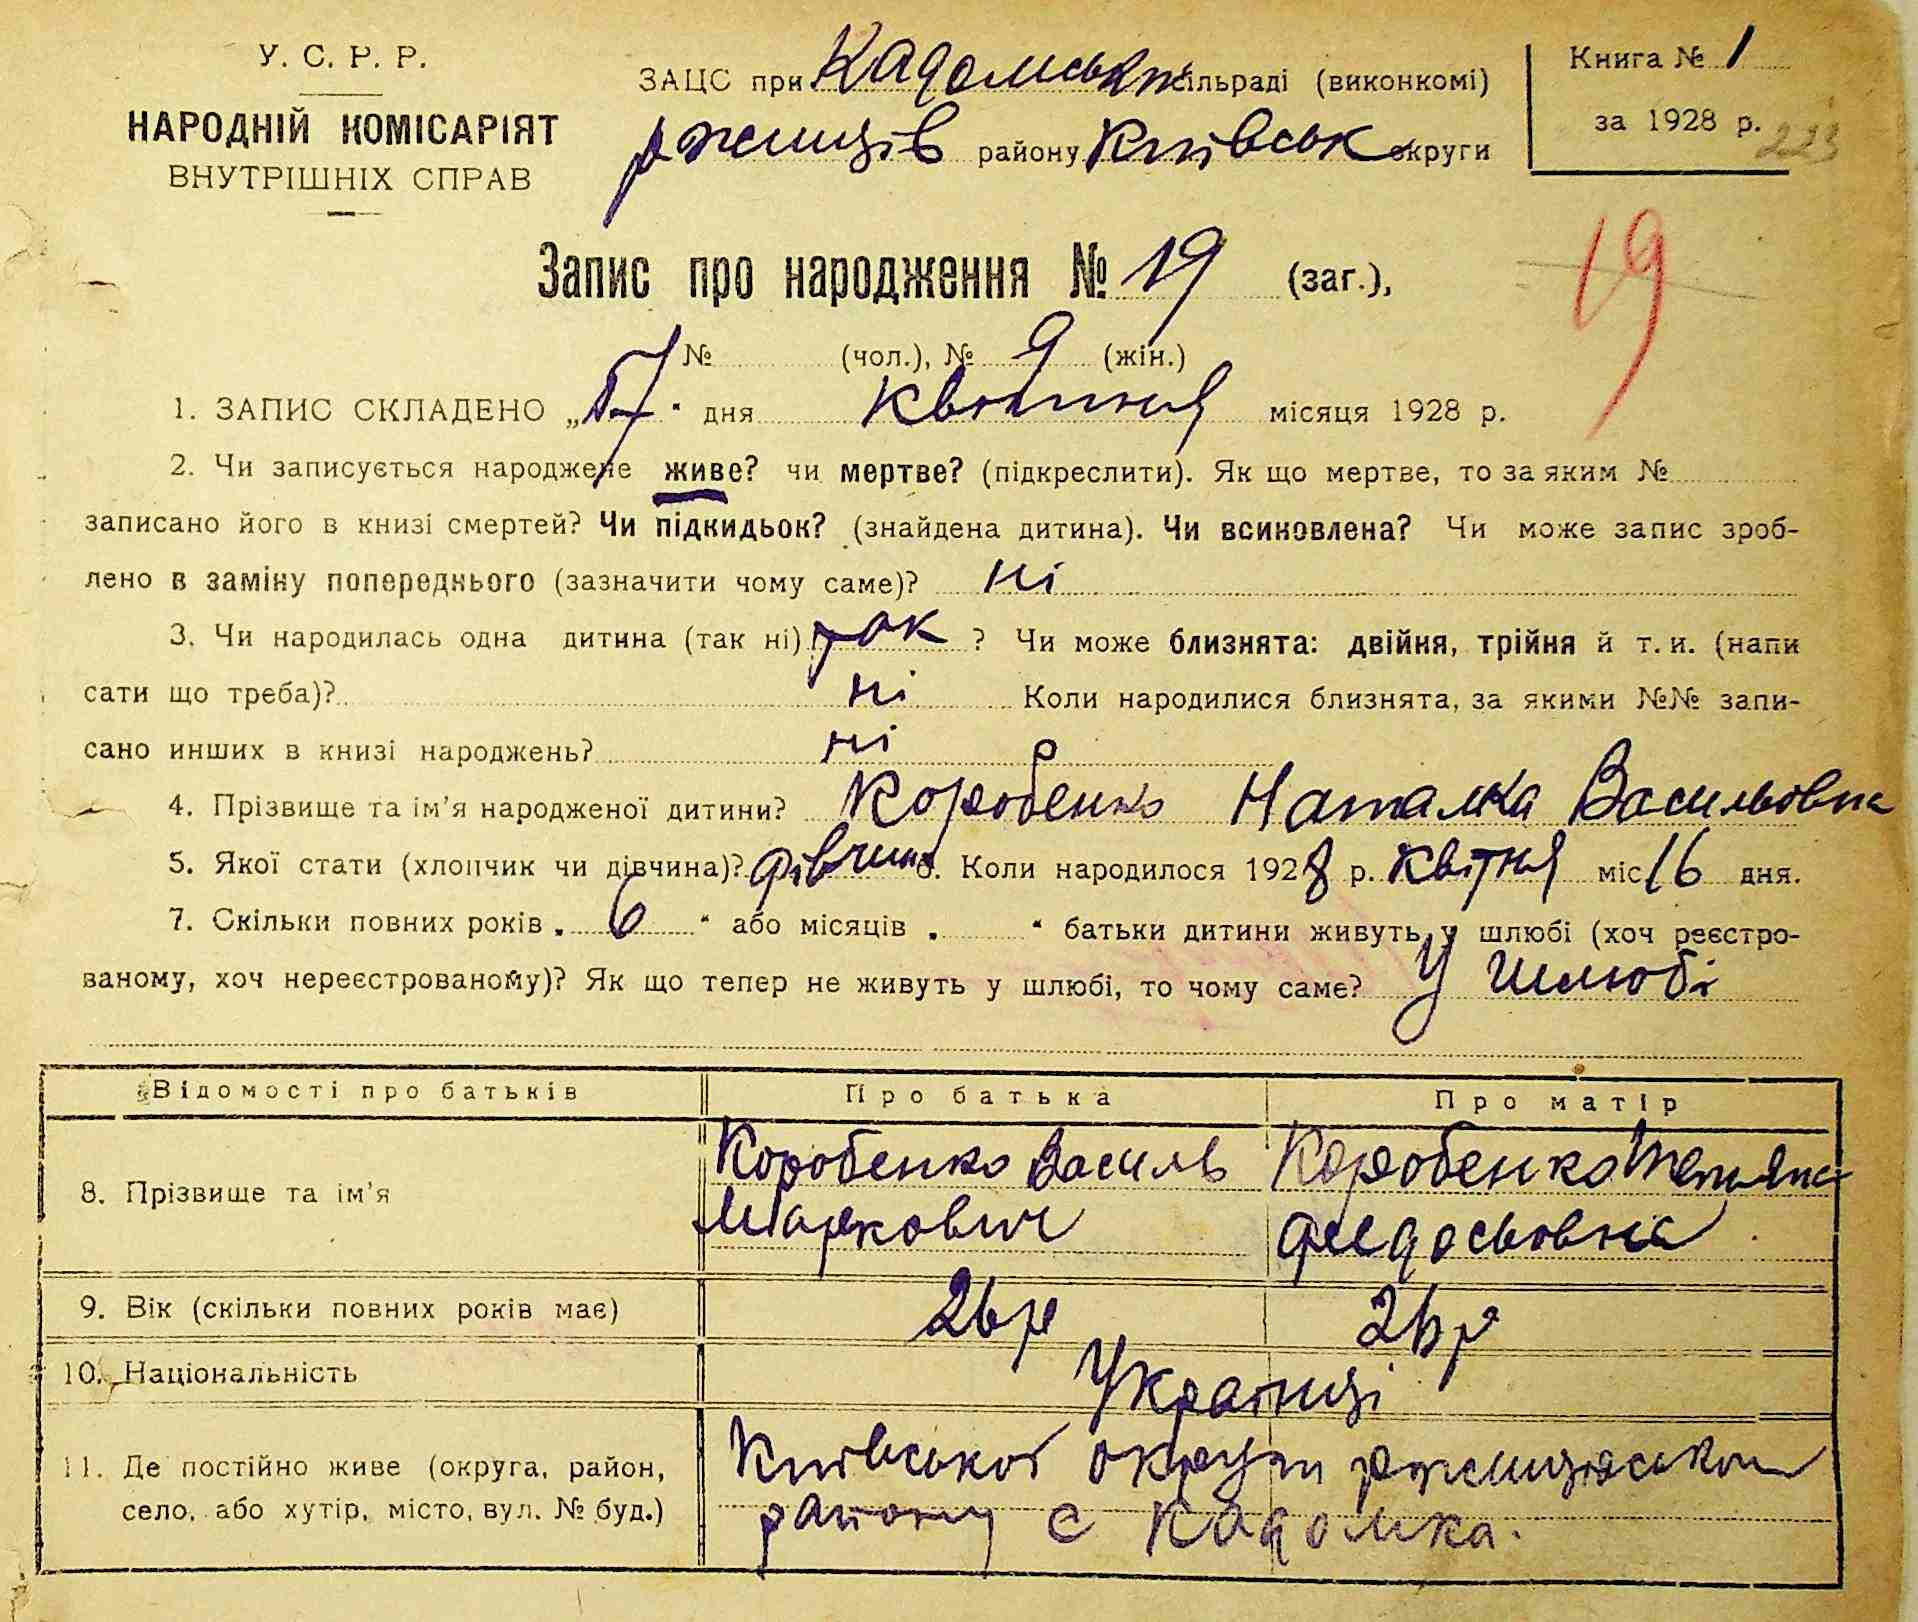 У. С. Р. Р.
НАРОДНІЙ КОМІСАРІЯТ
ВНУТРІШНІХ СПРАВ
ЗАЦС при Кадомській сільраді (виконкомі)
Ржищів району Київськ округи
Книга № 1
за 1928 р.
223
Запис про народження № 19 (заг.),
19
№ (чол.), № 9 (жін.)
1. ЗАПИС СКЛАДЕНО „17“ дня квітня місяця 1928 р.
2. Чи записується народжене живе? чи мертве? (підкреслити). Як що мертве, то за яким №
записано його в книзі смертей? Чи підкидьок? (знайдена дитина). Чи всиновлена? Чи може запис зроб-
лено в заміну попереднього (зазначити чому саме)? ні
3. Чи народилась одна дитина (так ні) так ? Чи може близнята: двійня, трійня й т. и. (напи
сати що треба)? ні Коли народилися близнята, за якими №№ запи-
сано инших в книзі народжень? ні
4. Прізвище та ім'я народженої дитини? Коробенко Наталка Васильовна
5. Якої стати (хлопчик чи дівчина)? дівчина 6. Коли народилося 1928 р. квітня міс 16 дня.
7. Скільки повних років „ 6 “ або місяців „ “ батьки дитини живуть у шлюбі (хоч реєстро-
ваному, хоч нереєстрованому)? Як що тепер не живуть у шлюбі, то чому саме? У шлюбі
Відомості про батьків Про батька Про матір
8. Прізвище та ім'я
Коробенко Василь
Маркович
Коробенко Тетяна
Федосьовна
9. Вік (скільки повних років має) 26 р 26 р
10. Національність Українці
11. Де постійно живе (округа, район,
село, або хутір, місто, вул. № буд.)
Київської округи Ржищівського
району с Кадомка.